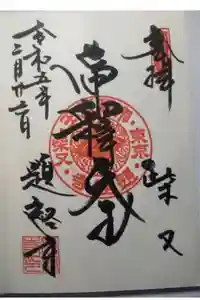 奉拝
柴又
帝釈天
題経寺
令和五年
二月廿二日
東京
柴又